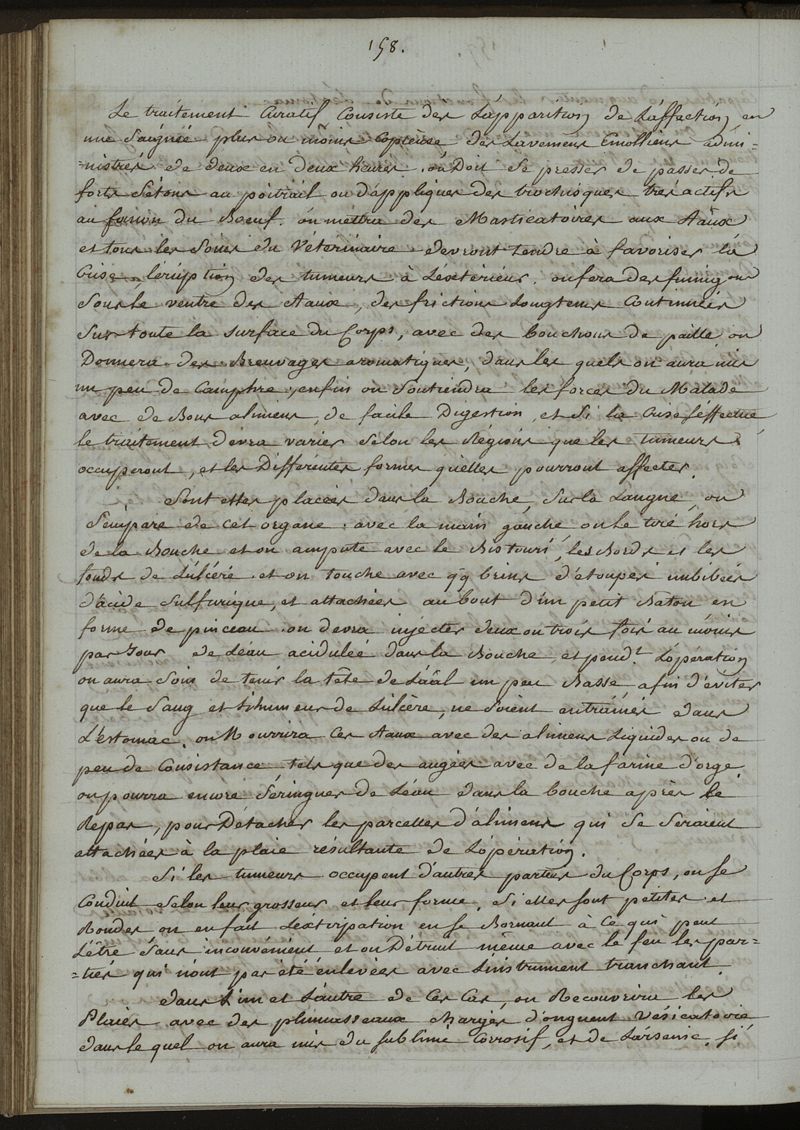 158.
Le traitement Curatif Consiste des L'apparition de L'affection en
une Saignée plus ou moins Copieuse des Lavemens Emolliens admi-
-nistrés de deux en deux heures. on Doit Se presser de passer de
forts Sétons au poitrail ou d'appliquer des trochisques très actifs
au fanon du Boeuf. on mettra des Masticatoires aux Aaux
et tous les Soins du Vétérinaire devront tendre à favoriser la
Crise L'éruption des tumeurs à L'éxtérieur. on fera des fumigons
Sous le ventre des Aaux, des frictions Longtems Continuées
Sur toute la surface du Corps, avec des bouchons de paille, on
Donnera des Breuvages aromatiques, dans les quels on aura mis
un peu de Camphre, enfin on Soutiendra les forces du Malade
avec de Bons alimens, de facile Digestion, et Si la Crise S'effectue
le traitement devra varier Selon les Régions que les tumeurs
occuperont, et les Différentes formes quelles pourront affecter.
Sont elles placées dans la Bouche, Sur la Langue, on
S'empare de cet organe avec la main gauche on le tire hors
de la Bouche et on ampute avec le Bistouri, les Bords et les
fonds de L'ulcère et on touche avec qq brins d'étoupes imbibées
d'acide Sulfurique, et attachées au bout d'un petit Baton en
forme de pinceau. on devra injecter deux ou trois fois au moins
par Jour de L'eau acidulée dans la Bouche, et pendt L'opération
on aura Soin de tenir la tête de L'aal un peu Basse afin d'éviter
que le Sang et L'humeur de L'ulcère, ne Soient entrainés dans
L'estomac. on Nourrira Ces Aaux avec des alimens Liquides ou de
peu de Consistance tels que des augées avec de la farine d'orge.
on pourra encore Séringuer de L'eau dans la bouche après le
Repas, pour Détacher les parcelles d'alimens qui Se Seraient
attachées à la plaie résultante de L'opération.
Si les tumeurs occupent d'autres parties du Corps, on Se
Conduit Selon leur grosseur et leur forme. Si elles sont petites et
Rondes on en fait L'extirpation en Se Bornant à Ce qui peut
L'être Sans inconvénient et on Détruit même avec le feu les par-
-ties qui nont pas été enlevées avec L'instrument tranchant.
Dans L'un et L'autre de Ces Cas, on Recouvrira les
Plaies avec des plumasseaux chargés d'onguent Vésicatoire
dans le quel on aura mis du sublimé Corrosif, et de L'arsenic. Si